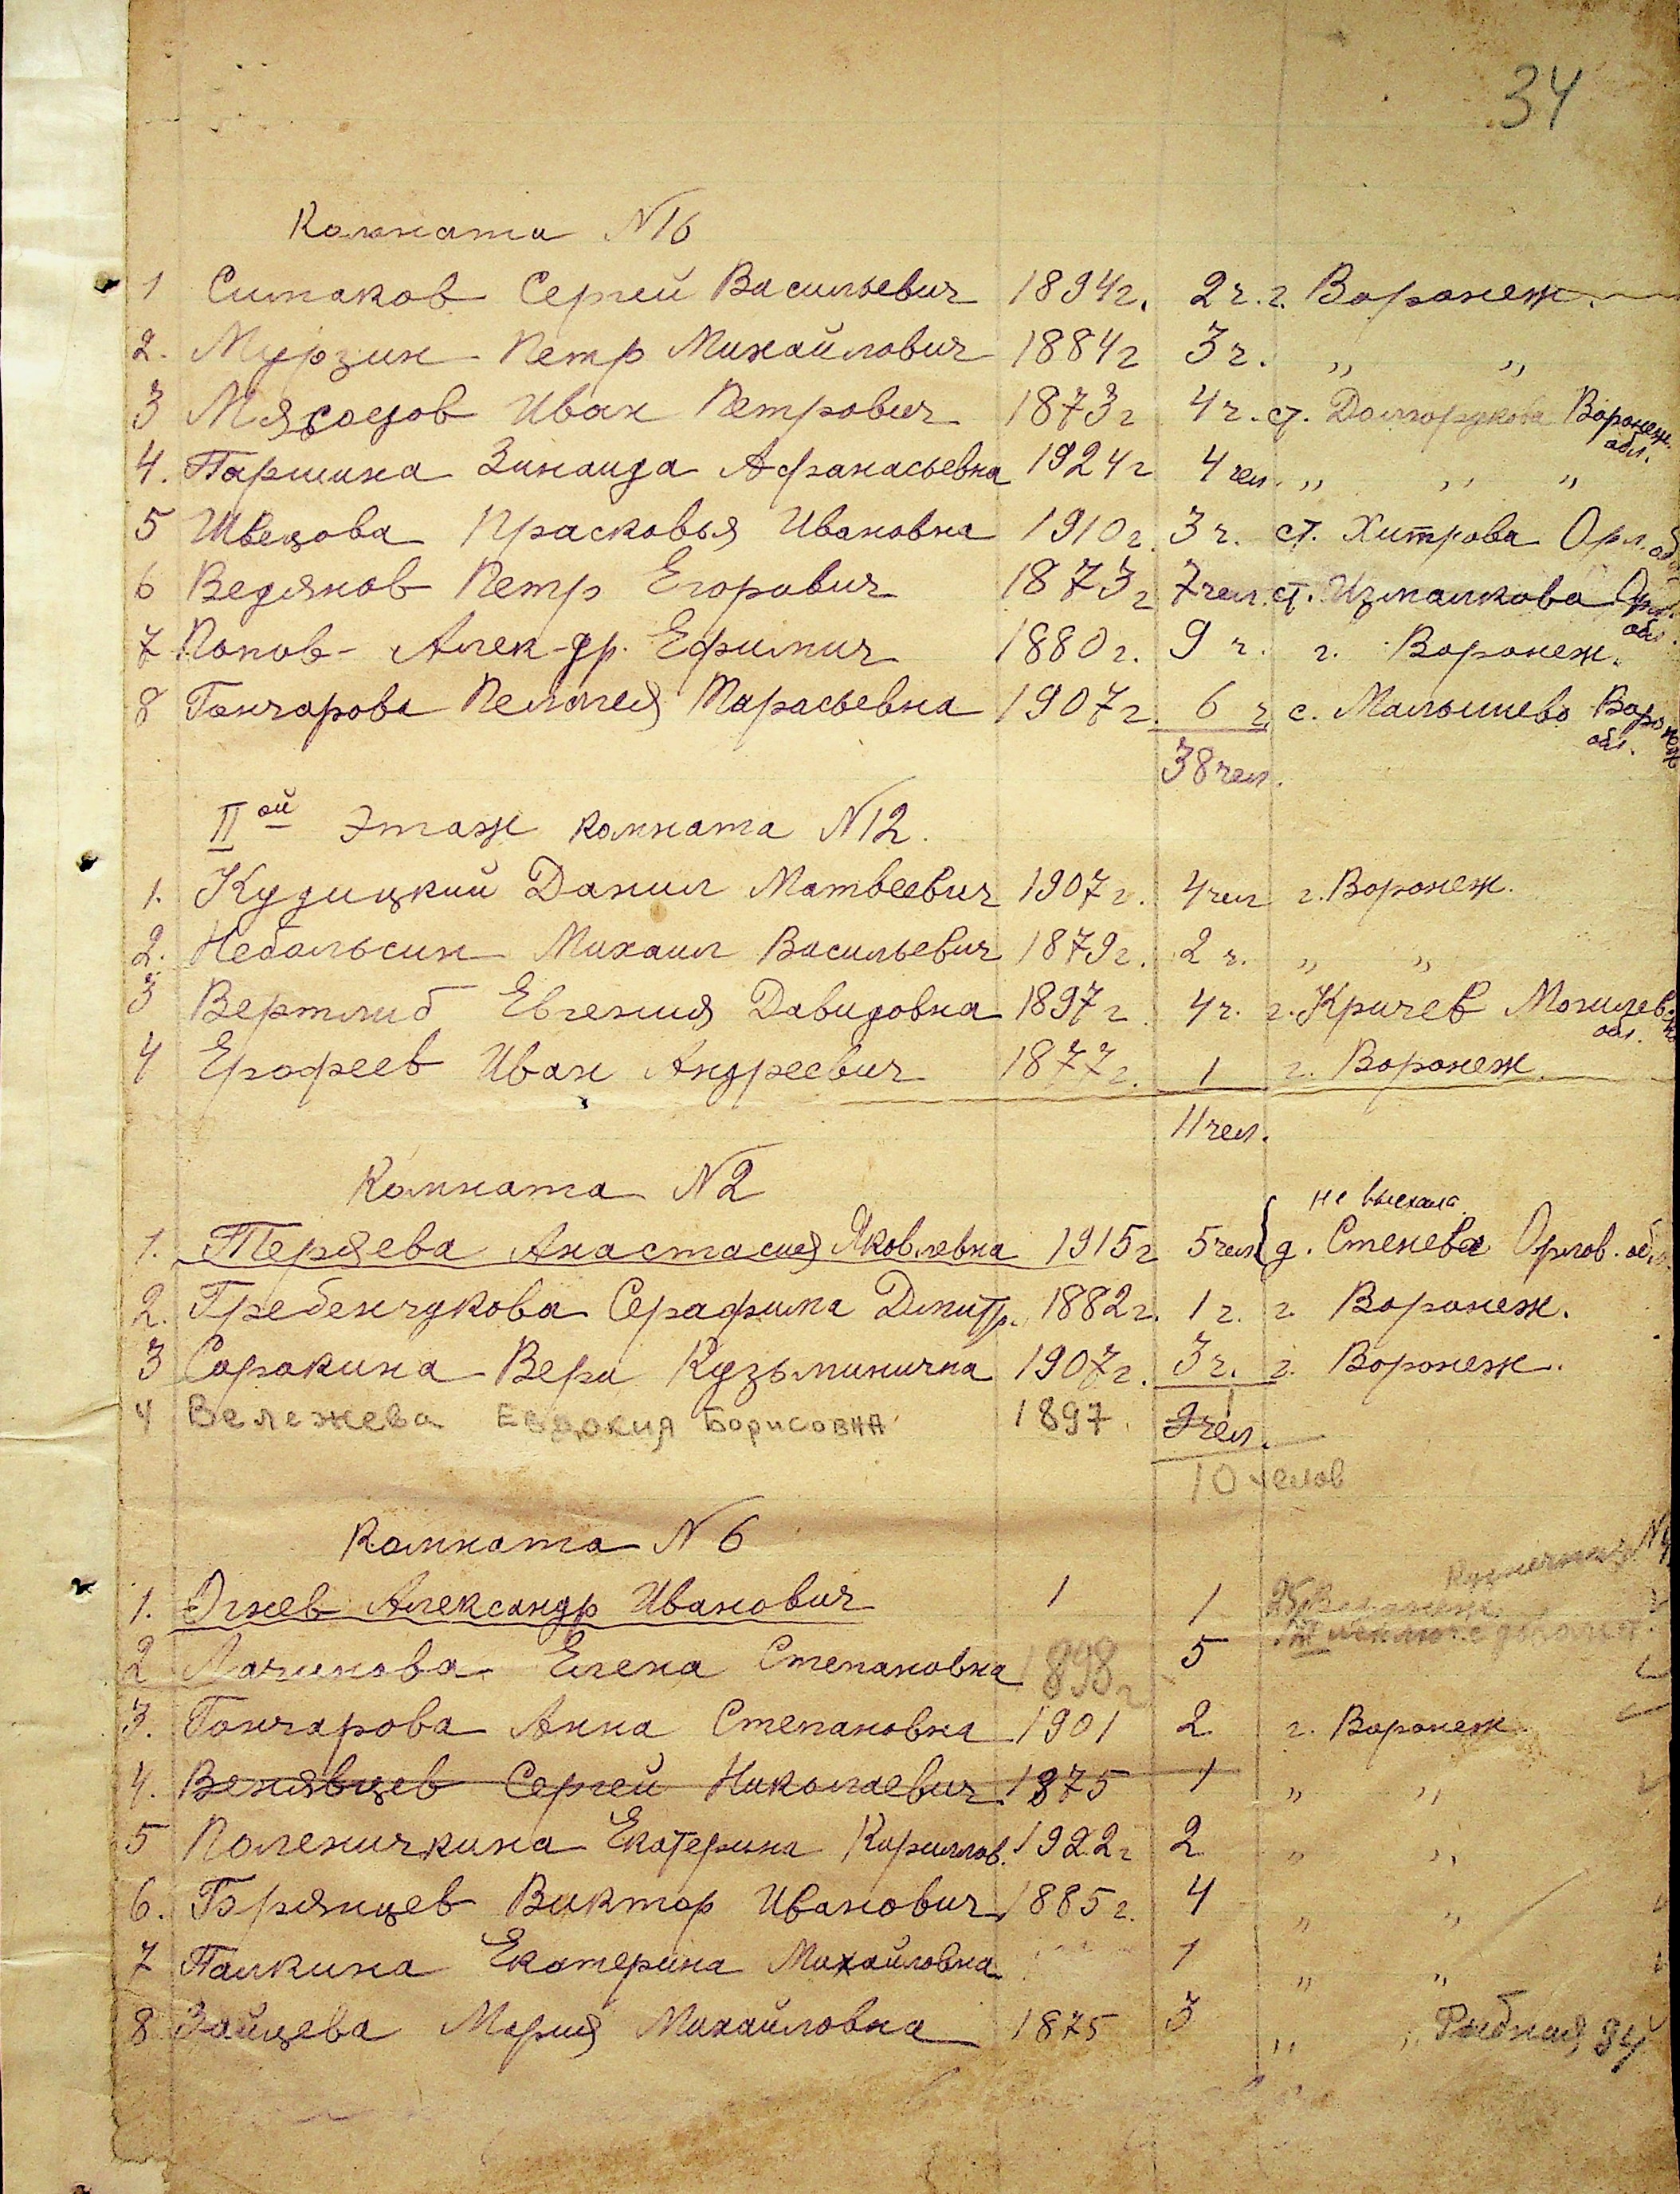 34
Комната N16
1 Ситаков Сергей Васильевич 1894г. 2ч. г. Воронеж.
2. Мурзин Петр Михайлович 1884г 3ч. " "
3 Мясоедов Иван Петрович 1873г 4ч. ст. Долгорукова Воронеж. обл.
4. Паршина Зинаида Афанасьевна 1924г 4 чел. " " "
5 Швецова Прасковья Ивановна 1910г. 3ч. ст. Хитрова Орл. об
6 Ведянов Петр Егорович 1873г 7чел. ст. Измалкова Орл. обл.
7 Попов Алек-др. Ефимич 1880г. 9 ч. г. Воронеж.
8 Гончарова Пелагея Тарасьевна 1907г. 6 ч с. Малышево Воронеж обл.
38 чел.
IIой Этаж комната N12.
1. Кудицкий Данил Матвеевич 1907г. 4чел г. Воронеж.
2. Небольсин Михаил Васильевич 1879г. 2 ч. " "
3 Вертлиб Евгения Давидовна 1897г 4ч. г. Кричев Могилев. обл.
4 Ерофеев Иван Андреевич 1877г. 1 г. Воронеж
11 чел.
Комната N2
не выехала
1. Теряева Анастасия Яковлевна 1915г 5чел д. Стенева Орлов. обл.
2. Гребенчукова Серафима Дмитр. 1882г. 1ч. г. Воронеж.
3 Сорокина Вера Кузьминична 1907г. 3ч. г. Воронеж.
4 Вележева Евдокия Борисовна 1897 1
9 чел.
10 челов
Комната N6
1. Огнев Александр Иванович 1 1
2 Лачинова Елена Степановна 1898г 5
3. Гончарова Анна Степановна 1901 2 г. Воронеж
4. Венявцев Сергей Николаевич 1875 1 " "
5 Поленичкина Екатерина Кириллов. 1922г 2 " "
6. Брянцев Виктор Иванович 1885г. 4 " "
7 Палкина Екатерина Михайловна 1 " "
8 Зайцева Мария Михайловна 1875 3 " " Рыбная 84